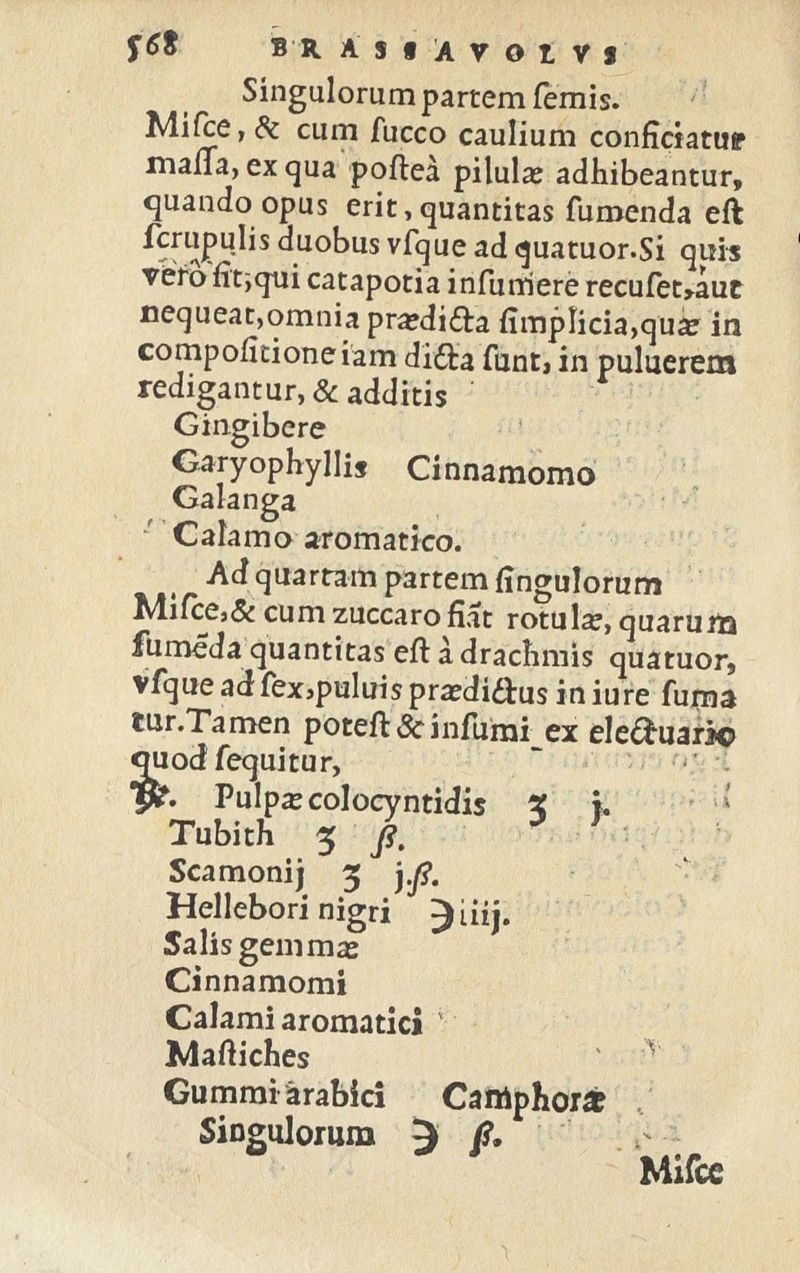 568 BRASSAVOLVS
Singulorum partem ſemis.
Miſce, & cum ſucco caulium conficiatur
maſſa, ex qua poſteà pilulæ adhibeantur,
quando opus erit, quantitas ſumenda eſt
ſcrupulis duobus vſque ad quatuor. Si quis
verò ſit, qui catapotia inſumere recuſet, aut
nequeat, omnia prædicta ſimplicia, quæ in
compoſitione iam dicta ſunt, in puluerem
redigantur, & additis
Gingibere
Garyophyllis Cinnamomo
Galanga
Calamo aromatico.
Ad quartam partem ſingulorum
Miſce, & cum zuccaro fiãt rotulæ, quarum
ſumẽda quantitas eſt à drachmis quatuor,
vſque ad ſex, puluis prædictus in iure ſuma
tur. Tamen poteſt & inſumi ex electuario
quod ſequitur,
℞. Pulpæ colocyntidis ʒ j.
Tubith ʒ ß.
Scamonij ʒ j.ß.
Hellebori nigri ℈ iiij.
Salis gemmæ
Cinnamomi
Calami aromatici
Maſtiches
Gummi arabici Camphoræ
Singulorum ℈ ß.
Miſce